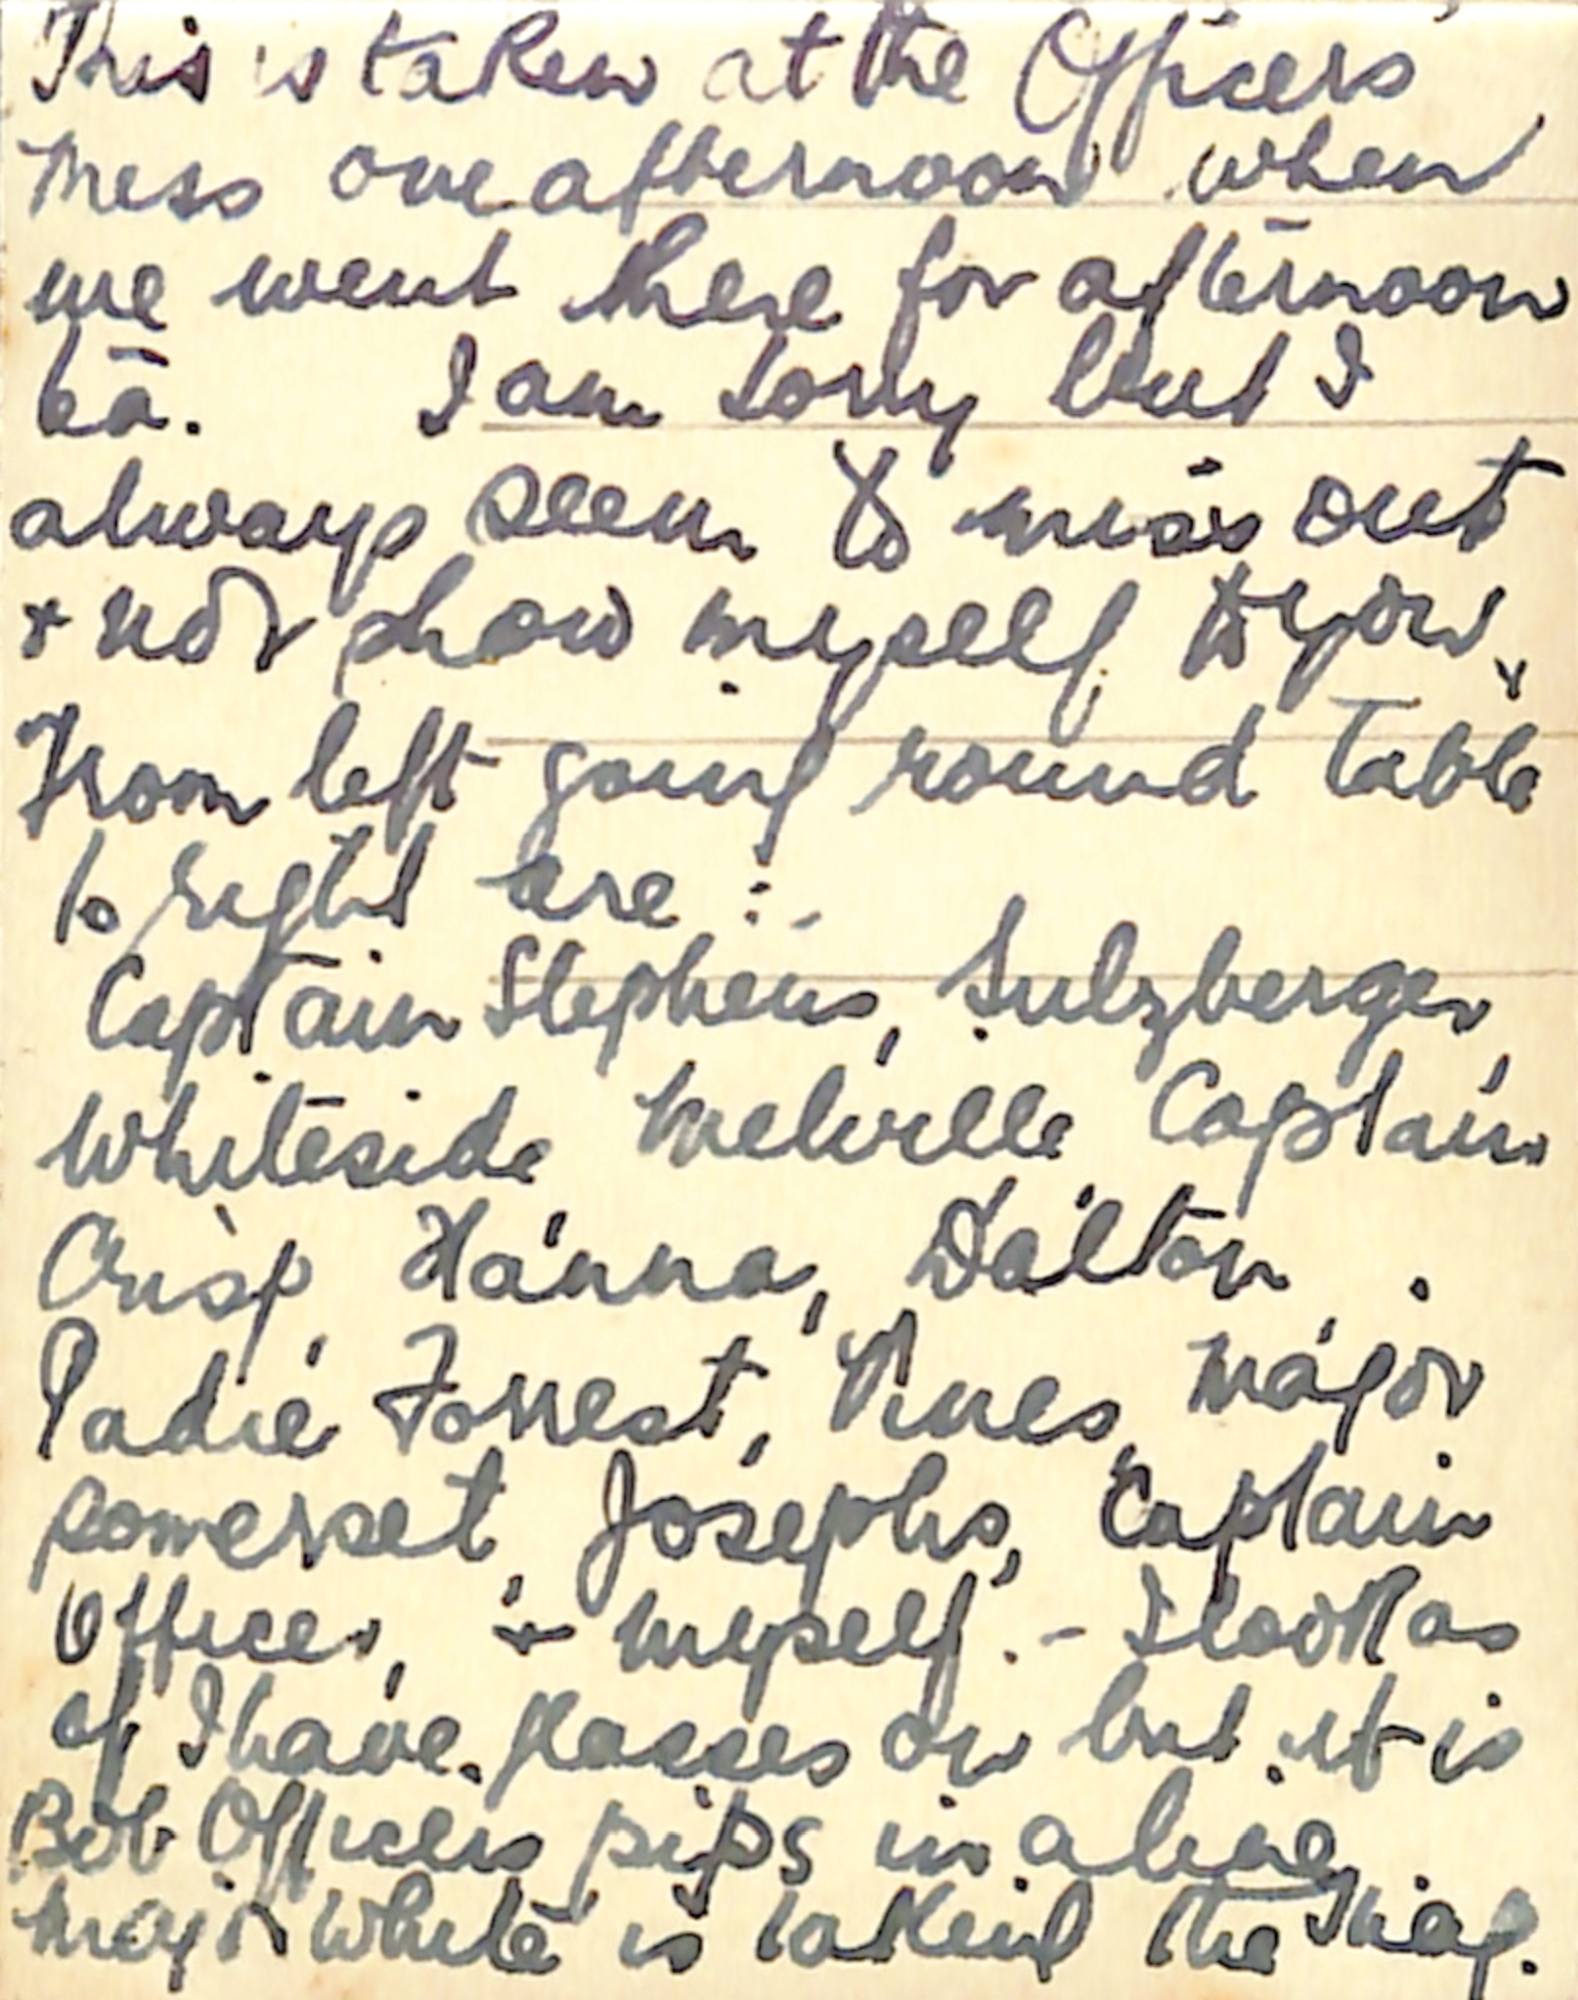 This is taken at the Officers'
Mess one afternoon when
we went there for afternoon
tea. I am sorry but I
always seem to miss out
& not show myself to you.
From left going round table
to right are :-
Captain Stephens, Sulzberger,
Whiteside Melville Captain
Crisp, Hanna, Dalton,
Padre Forrest, Vines, Major
Somerset, Josephs, Captain
Officer, & myself. - I look as
if I have glasses on but it is
Bob Officers pips in a line
Major White is taking the snap.